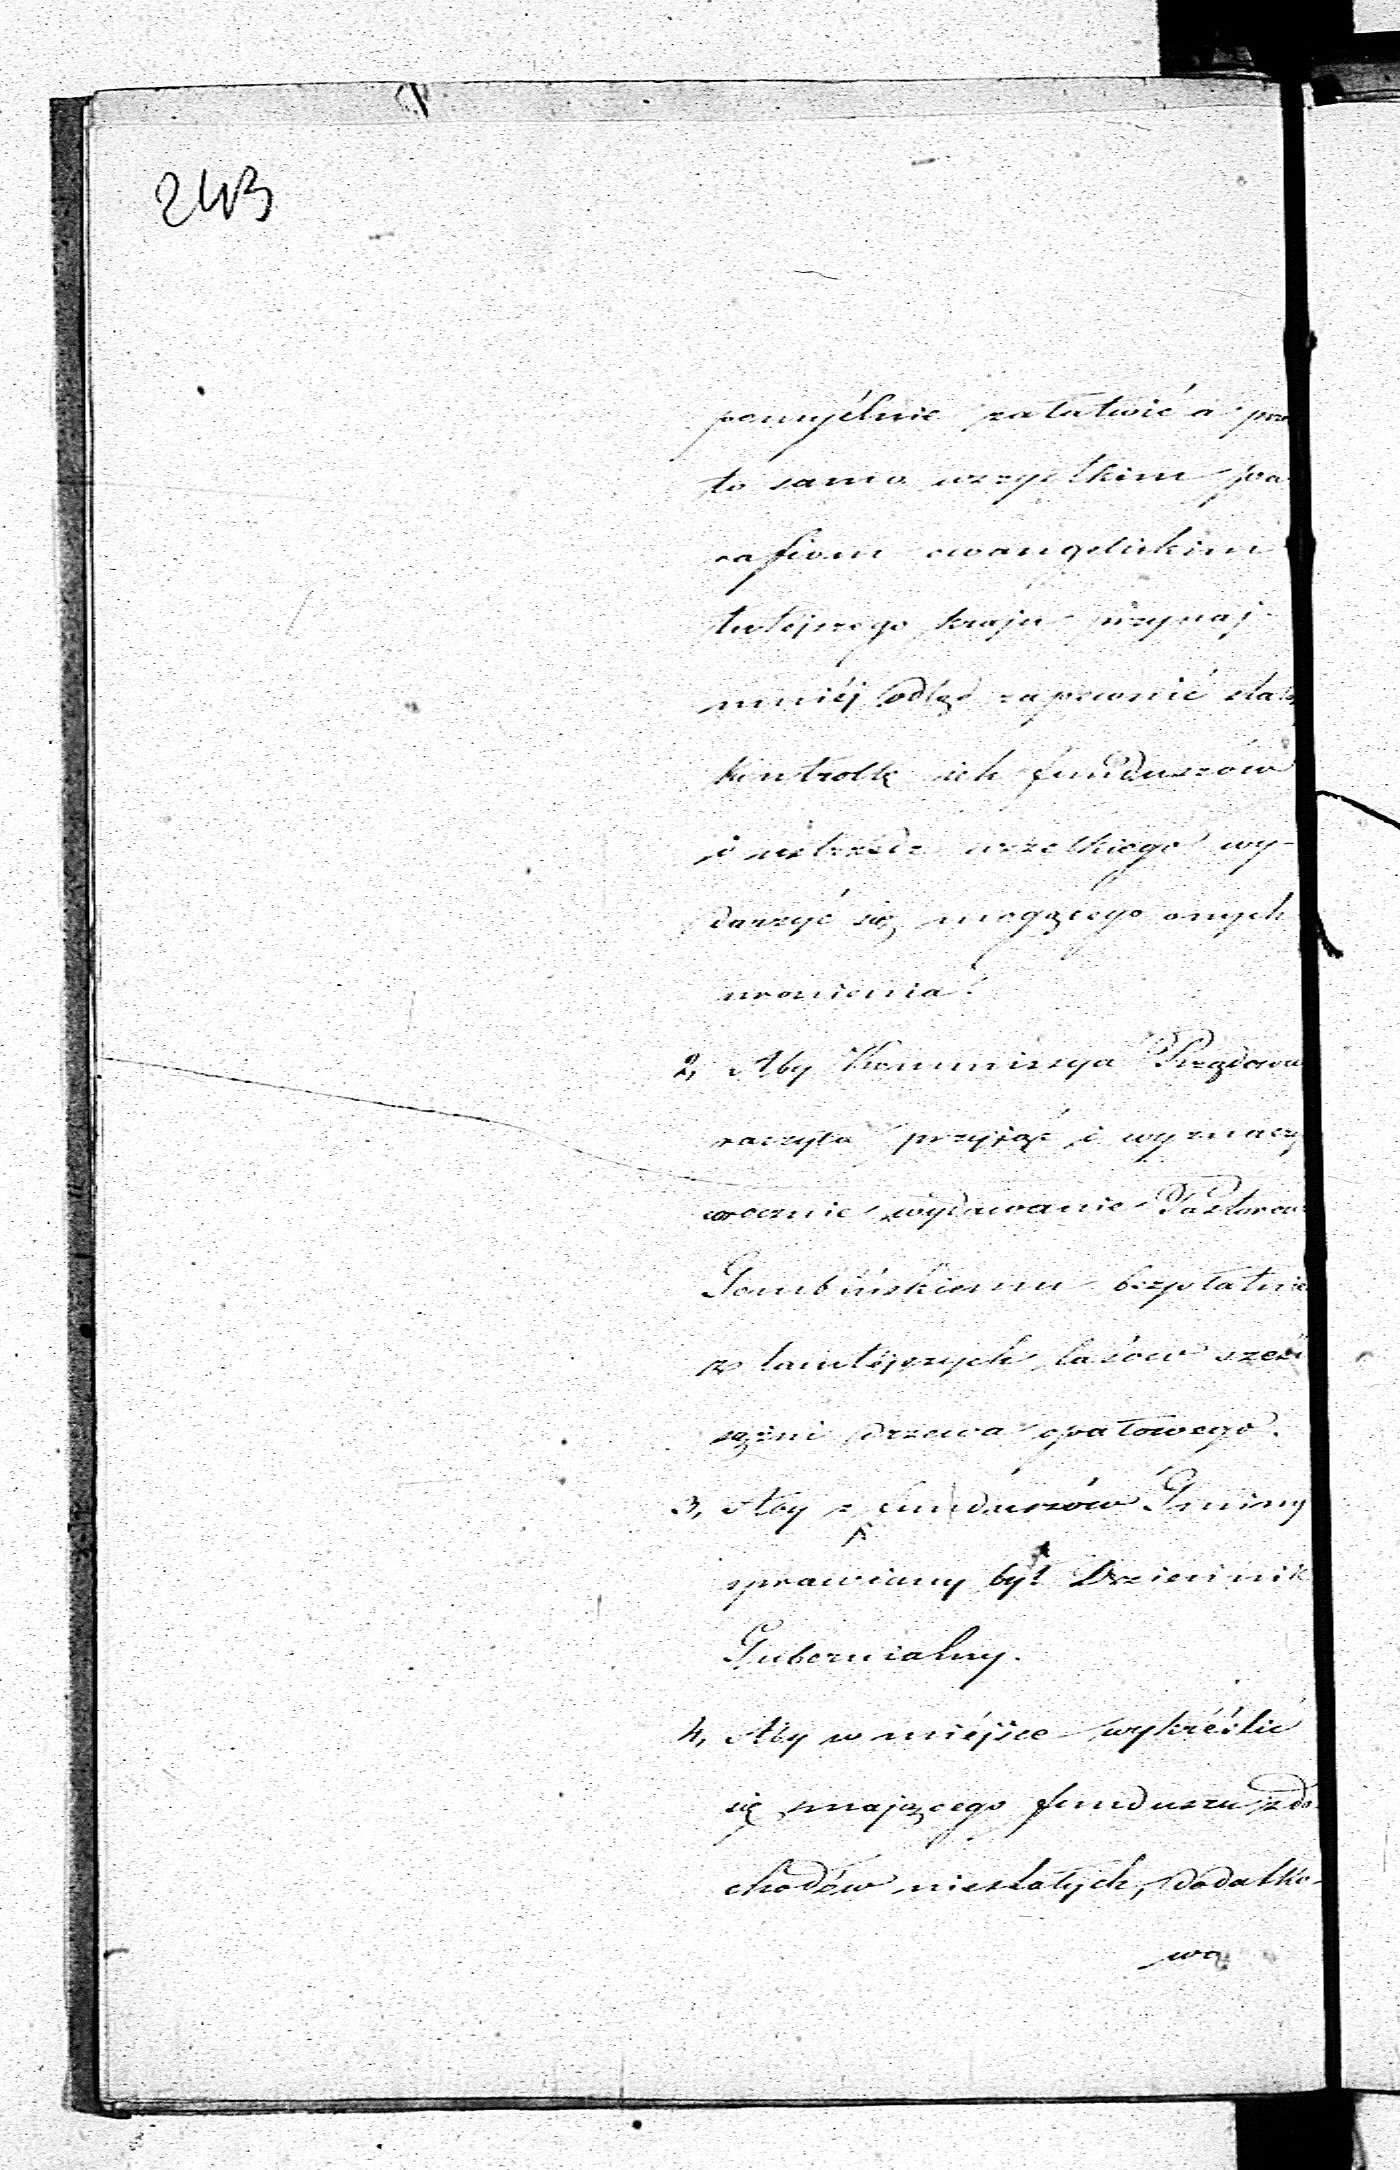 243
pomyślnie załatwić a prze
to samo wszystkim pa
rafiom ewangelickim
tutéjszego kraju przynaj
mniéj odtąd zapewnić stałą
kontrolę ich funduszów
i ustrzedz wszelkiego wy-
darzyć się mogącego onych
uronienia.
2, Aby Kommissya Rządowa
raczyła przyjąć i wyznaczyć
corocznie wydawanie Pastorowi
Gombińskiemu bezpłatnie
z tamtéjszych lasów sześć
sążni drzewa opałowego.
3, Aby z funduszów Gminy
sprawiany był Dziennik
Gubernialny.
4, Aby w miéjsce wykréślić
się mającego funduszu z do
chodów niestałych, dodatko-
wa